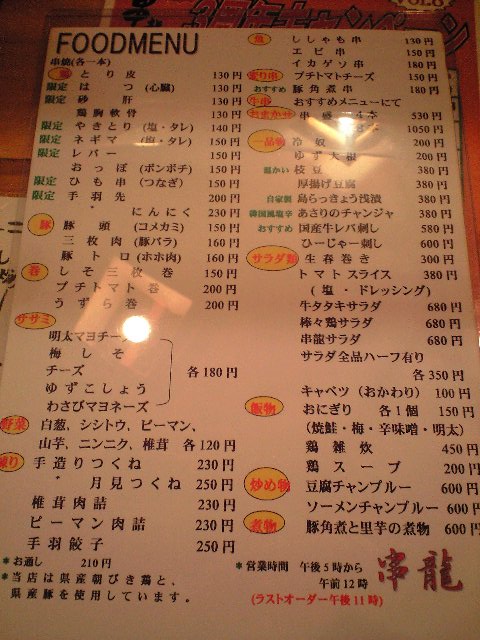 VOL.8
FOODMENU
串焼(各一本)
鶏 とり皮 130円
限定 はつ (心臓) 130円
限定 砂肝 130円
鶏胸軟骨 130円
限定 やきとり (塩・タレ) 140円
限定 ネギマ (塩・タレ) 150円
限定 レバー 150円
おっぽ (ボンボチ) 150円
限定 ひも串 (つなぎ) 150円
限定 手羽先 200円
〃 にんにく 230円
豚 豚頭 (コメカミ) 150円
三枚肉 (豚バラ) 160円
豚トロ (ホホ肉) 160円
巻 しそ三枚巻 150円
プチトマト巻 200円
うずら巻 200円
ササミ
明太マヨチーズ
梅しそ
チーズ 各180円
ゆずこしょう
わさびマヨネーズ
野菜 白葱、シシトウ、ピーマン、
山芋、ニンニク、椎茸 各120円
練り 手造りつくね 230円
月見つくね 250円
椎茸肉詰 230円
ピーマン肉詰 230円
手羽餃子 250円
*お通し 210円
*当店は県産朝びき鶏と、
県産豚を使用しています。
魚 ししゃも串 130円
エビ串 150円
イカゲソ串 180円
変り串 プチトマトチーズ 150円
おすすめ 豚角煮串 180円
牛串 おすすめメニューにて
おまかせ 串盛 4本 530円
8本 1050円
一品物 冷奴 200円
ゆず大根 200円
温かい 枝豆 380円
厚揚げ豆腐 380円
自家製 島らっきょう浅漬 380円
韓国風塩辛 あさりのチャンジャ 380円
おすすめ 国産牛レバ刺し 580円
ひーじゃー刺し 600円
サラダ類 生春巻き 300円
トマトスライス 380円
(塩・ドレッシング)
牛タタキサラダ 680円
棒々鶏サラダ 680円
串龍サラダ 680円
サラダ全品ハーフ有り
各350円
キャベツ (おかわり) 100円
飯物 おにぎり 各1個 150円
(焼鮭・梅・辛味噌・明太)
鶏雑炊 450円
鶏スープ 200円
炒め物 豆腐チャンプルー 600円
ソーメンチャンプルー 600円
煮物 豚角煮と里芋の煮物 600円
*営業時間 午後5時から
午前12時
(ラストオーダー午後11時)
串龍